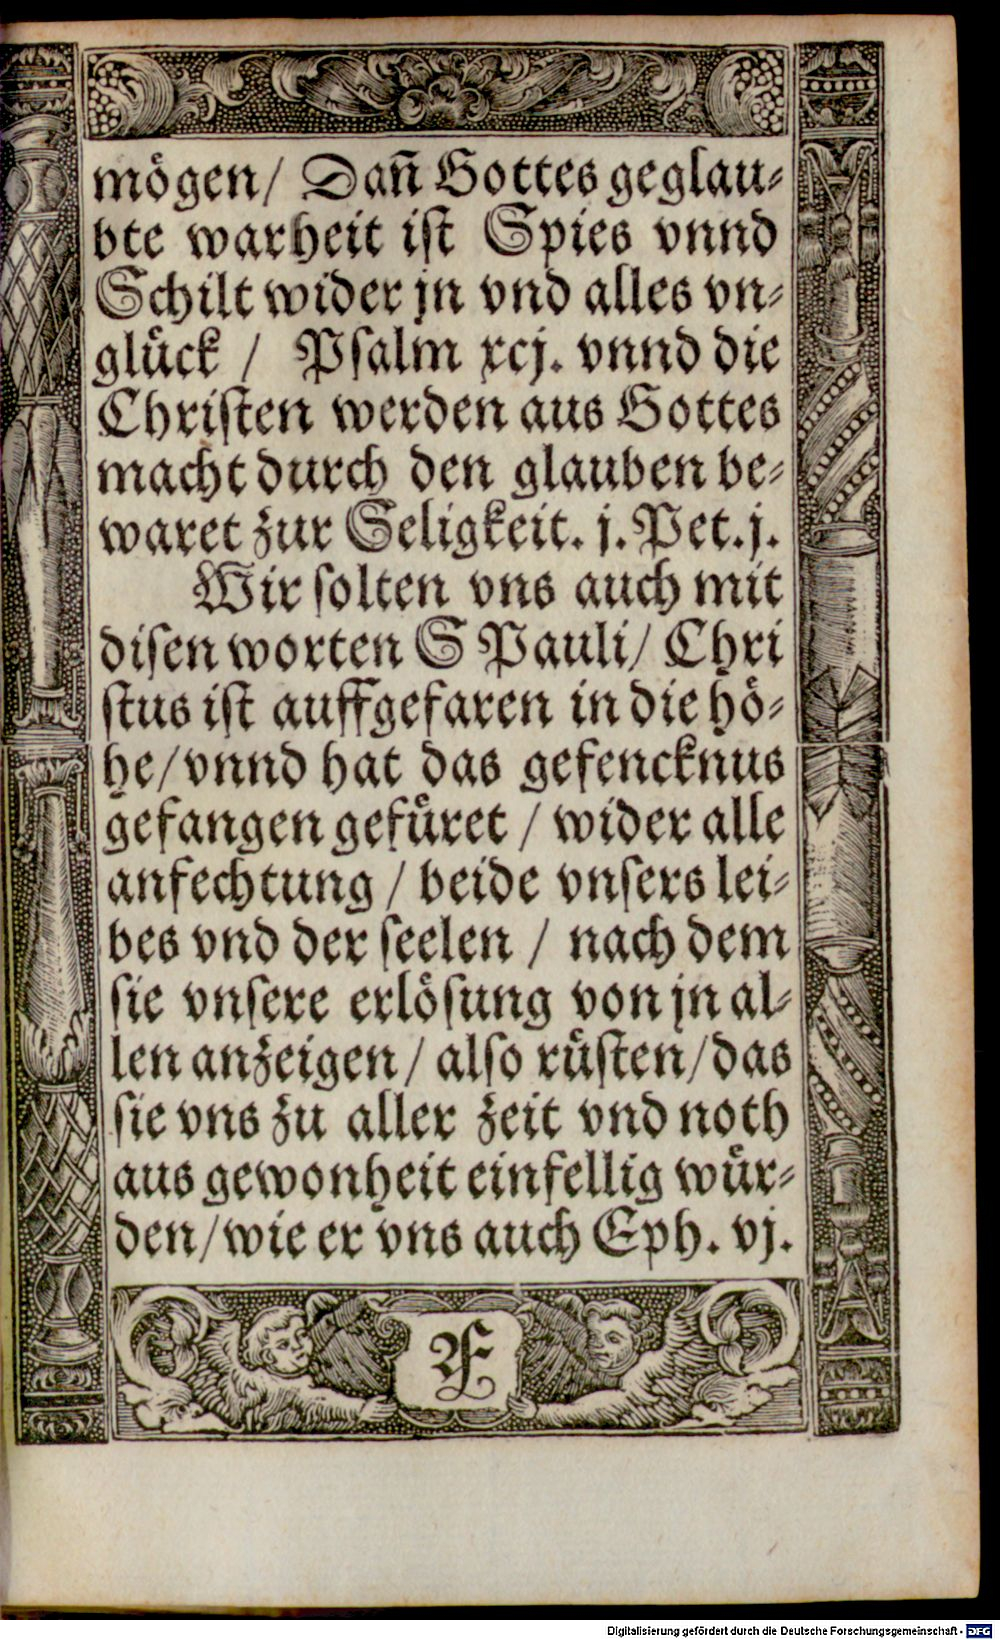 mögen/ Dañ Gottes geglau⸗
bte warheit iſt Spies vnnd
Schilt wider jn vnd alles vn⸗
glück / Pſalm xcj. vnnd die
Chriſten werden aus Gottes
macht durch den glauben be⸗
waret zur Seligkeit. j. Pet. j.
Wir ſolten vns auch mit
diſen worten S Pauli/ Chri
ſtus iſt auffgefaren in die hö⸗
he/ vnnd hat das gefencknus
gefangen gefüret / wider alle
anfechtung / beide vnſers lei⸗
bes vnd der ſeelen / nach dem
ſie vnſere erlöſung von jn al⸗
len anzeigen / alſo rüſten/ das
ſie vns zu aller zeit vnd noth
aus gewonheit einfellig wür⸗
den/ wie er vns auch Eph. vj.
Æ
Digitalisierung gefördert durch die Deutsche Forschungsgemeinschaft - DFG